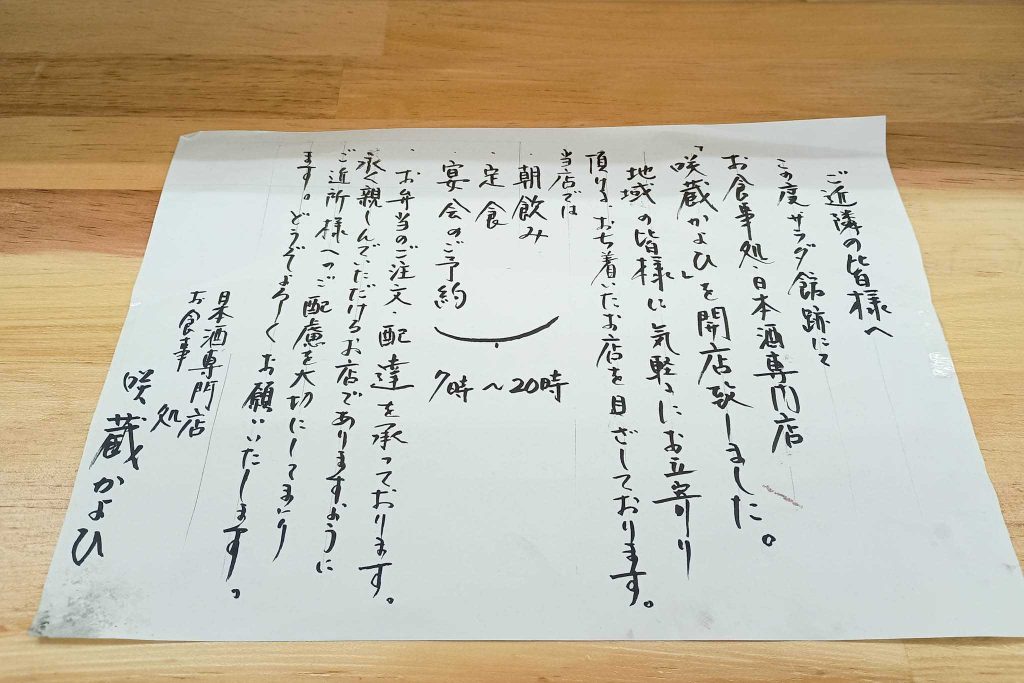 ご近隣の皆様へ
この度サラダ館跡にて
お食事処・日本酒専門店
「咲蔵かよひ」を開店致しました。
地域の皆様に気軽にお立寄り
頂ける、おち着いたお店を目ざしております。
当店では
・朝飲み
・定食
・宴会のご予約
7時〜20時
・お弁当のご注文・配達を承っております。
永く親しんでいただけるお店でありますように
ご近所様へのご配慮を大切にしてまいり
ます。どうぞよろしくお願いいたします。
日本酒専門店
お食事処
咲蔵かよひ